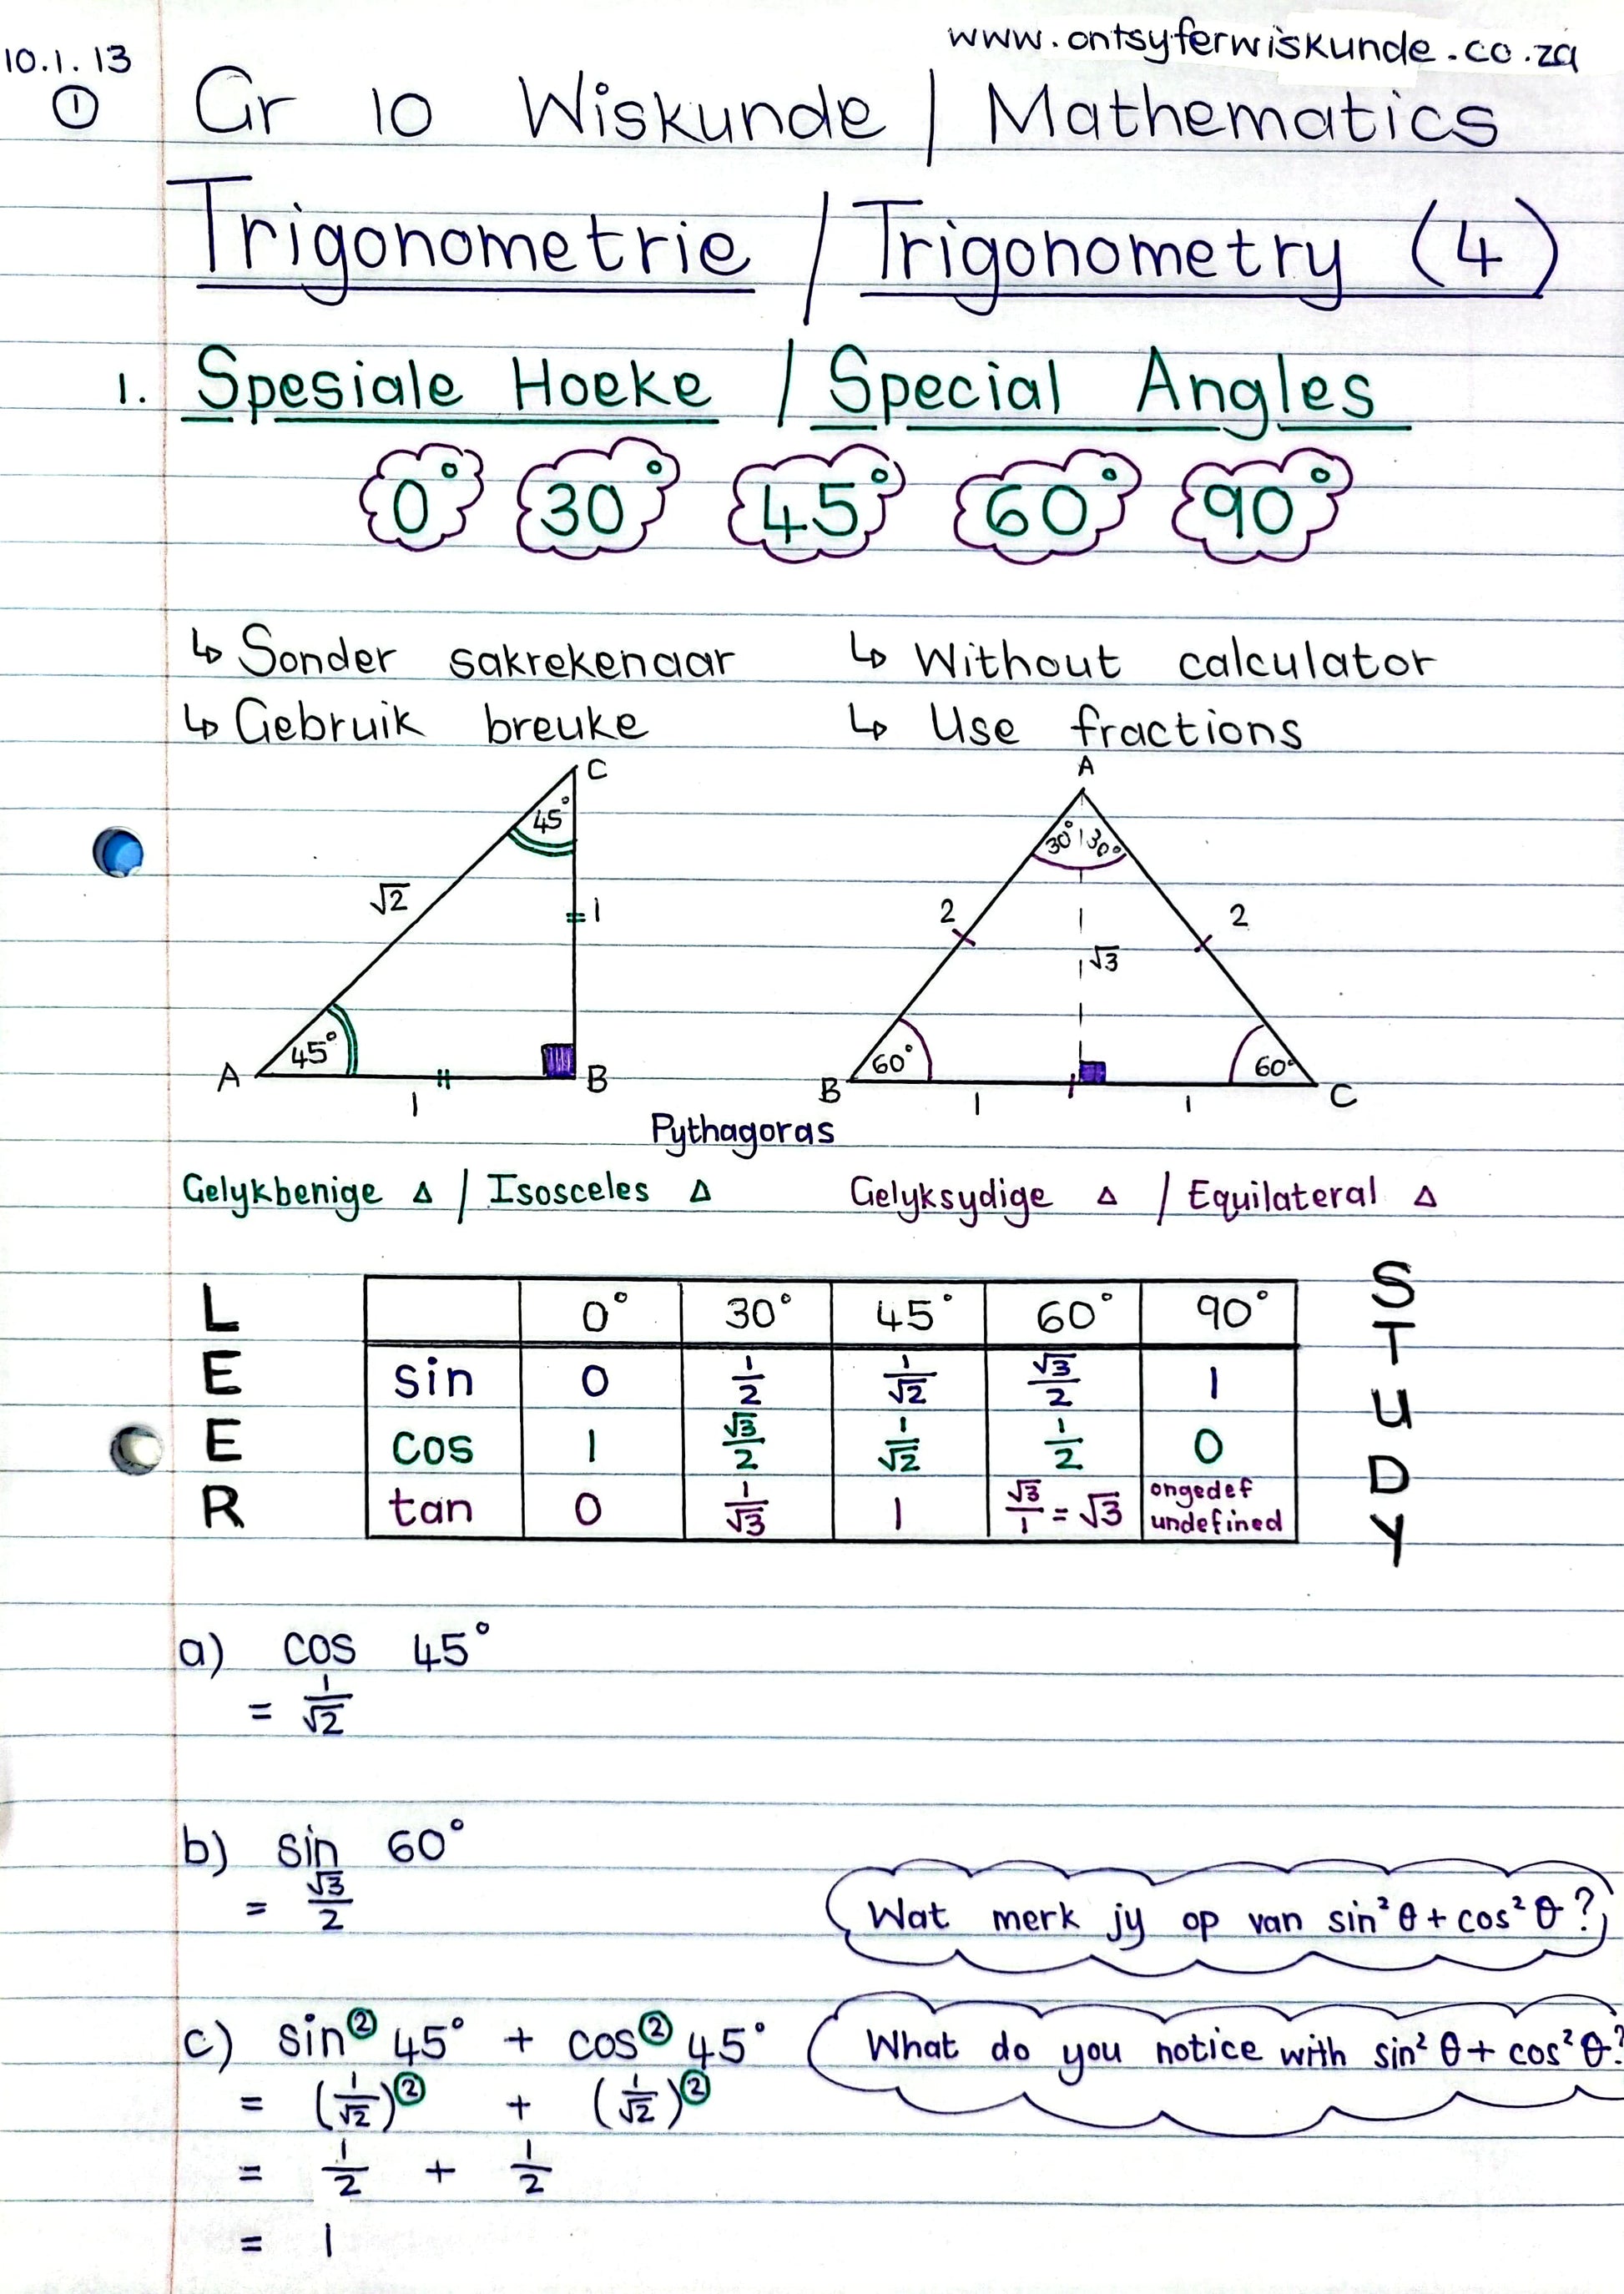 www.ontsyferwiskunde.co.za
10.1.13
① Gr 10 Wiskunde / Mathematics
Trigonometrie / Trigonometry (4)
1. Spesiale Hoeke / Special Angles
0° 30° 45° 60° 90°
↳ Sonder sakrekenaar ↳ Without calculator
↳ Gebruik breuke ↳ Use fractions
C A
45° 30° 30°
√2 1 2 2
√3
45° 60° 60°
A B B C
1 1 1
Pythagoras
Gelykbenige Δ / Isosceles Δ Gelyksydige Δ / Equilateral Δ
LEER STUDY
0° 30° 45° 60° 90°
sin 0 1/2 1/√2 √3/2 1
cos 1 √3/2 1/√2 1/2 0
tan 0 1/√3 1 √3/1 = √3 ongedef
undefined
a) cos 45°
= 1/√2
b) sin 60°
= √3/2
Wat merk jy op van sin² θ + cos² θ?
c) sin² 45° + cos² 45°
What do you notice with sin² θ + cos² θ?
= (1/√2)² + (1/√2)²
= 1/2 + 1/2
= 1